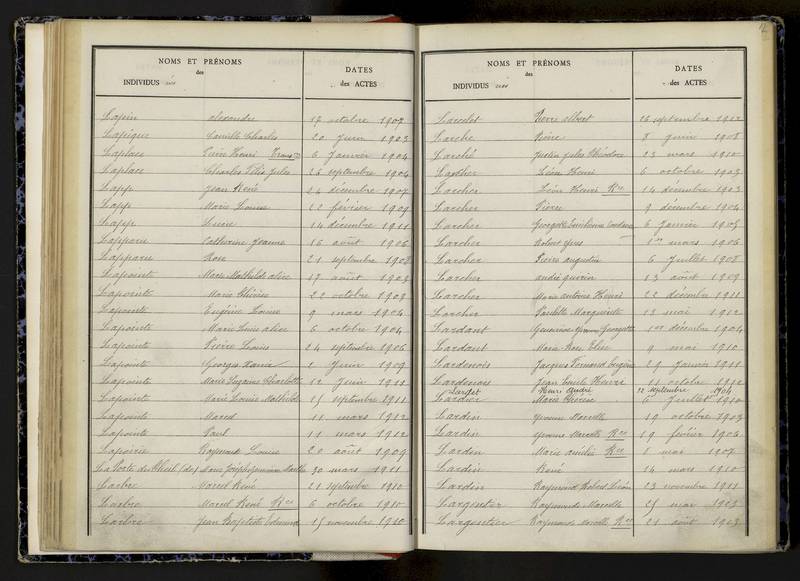 NOMS ET PRÉNOMS DATES
des
INDIVIDUS des ACTES
Lapin alexandre 17 octobre 1907
Lapique Camille Charles 20 Juin 1903
Laplace Pierre Henri 6 Janvier 1904
Laplace Charles Félix Jules 26 septembre 1904
Lapp Jean René 24 décembre 1907
Lapp Marie Louise 22 février 1909
Lapp Lucie 14 décembre 1911
Lapparu Catherine Jeanne 16 août 1906
Lapparu Rose 21 septembre 1908
Lapointe Marie Mathilde alice 17 août 1903
Lapointe Marie Thérèse 22 octobre 1903
Lapointe Eugénie Louise 9 mars 1904
Lapointe Marie Louise alice 6 octobre 1904
Lapointe Pierre Louis 24 septembre 1906
Lapointe Georges 2 Juin 1909
Lapointe Marie Eugénie Charlotte 12 Juin 1911
Lapointe Marie Louise Mathilde 15 septembre 1911
Lapointe Marcel 11 mars 1912
Lapointe Paul 11 mars 1912
Lapoirie Raymond Louis 20 août 1909
La Porte du Theil (de) Marie Joséphe 30 mars 1911
Larbre Marcel René 21 septembre 1910
Larbre Marcel René Rec 6 octobre 1910
Larbre Jean Baptiste Edmond 15 novembre 1910
12
NOMS ET PRÉNOMS DATES
des
INDIVIDUS des ACTES
Larcelet Pierre albert 16 septembre 1912
Larche Pierre 8 Juin 1908
Larché Julien Jules Théodore 23 mars 1910
Larcher Léon Henri 6 octobre 1903
Larcher Léon Henri Rec 14 décembre 1903
Larcher Pierre 9 décembre 1904
Larcher Georgette Emilienne 6 Janvier 1905
Larcher Robert Yves 1er mars 1906
Larcher Pierre augustin 6 Juillet 1908
Larcher andré 13 août 1909
Larcher Marie antoine Henri 22 décembre 1911
Larcher Paulette Marguerite 13 mai 1912
Lardant Geneviève Georgette 1er décembre 1904
Lardant Marie Rose Elise 9 mai 1910
Lardenois Jacques Fernand Eugène 29 Janvier 1911
Lardenois Jean Emile Henri 11 octobre 1912
Larget Henri André 12 septembre 1904
Lardier Marie Thérèse 6 Juillet 1910
Lardin Yvonne Marcelle 19 octobre 1903
Lardin Yvonne Marcelle Rec 19 février 1904
Lardin Marie amélie Rec 8 mai 1907
Lardin René 14 mars 1910
Lardin Raymond Robert Léon 23 novembre 1911
Largentier Raymonde Marcelle 25 mai 1903
Largentier Raymonde Marcelle Rec 21 août 1903